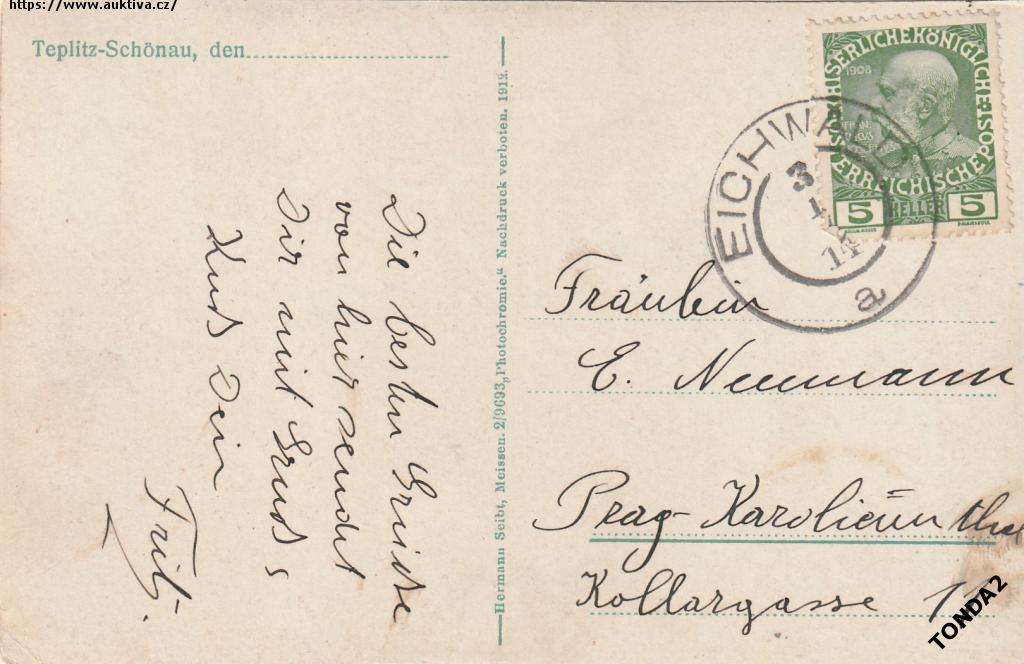 https://www.auktiva.cz/
Teplitz-Schönau, den
Die besten Grüsse
von hier sendet
Dir mit Gruss &
Kuss Dein
Fritz.
Hermann Seibt, Meissen. 2/9693 „Photochromie.“ Nachdruck verboten. 1912.
KAISERLICHE KÖNIGLICHE
ÖSTERREICHISCHE POST
1908
5 HELLER 5
EICHWALD
3
14
a
Fräulein
E. Neumann
Prag-Karolinenthal
Kollargasse
TONDA2